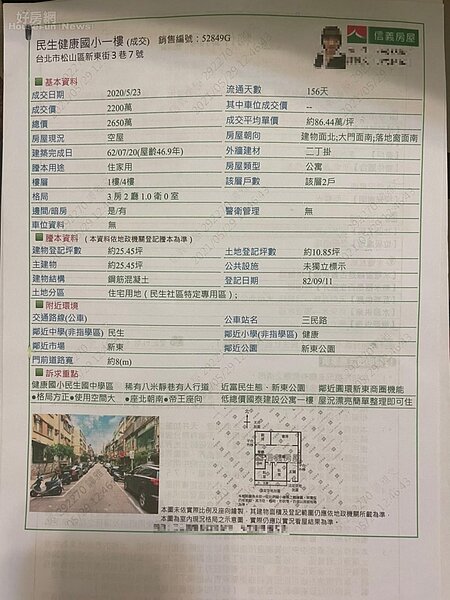 好房網
HouseFun News
民生健康國小一樓 (成交) 銷售編號：52849G
台北市松山區新東街3巷7號
信義房屋
基本資料
成交日期 2020/5/23 流通天數 156天
成交價 2200萬 其中車位成交價 --
總價 2650萬 成交平均單價 約86.44萬/坪
房屋現況 空屋 房屋朝向 建物面北;大門面南;落地窗面南
建築完成日 62/07/20(屋齡46.9年) 外牆建材 二丁掛
謄本用途 住家用 房屋類型 公寓
樓層 1樓/4樓 該層戶數 該層2戶
格局 3 房 2 廳 1.0 衛 0 室
邊間/暗房 是/有 警衛管理 無
車位資料 無
謄本資料 (本資料依地政機關登記謄本為準)
建物登記坪數 約25.45坪 土地登記坪數 約10.85坪
主建物 約25.45坪 公共設施 未獨立標示
建物結構 鋼筋混凝土 登記日期 82/09/11
土地分區 住宅用地（民生社區特定專用區）;
附近環境
交通路線(公車) 公車站名 三民路
鄰近中學(非指學區) 民生 鄰近小學(非指學區) 健康
鄰近市場 新東 鄰近公園 新東公園
門前道路寬 約8(m)
訴求重點
健康國小民生國中學區 稀有八米靜巷有人行道 近富民生態、新東公園 鄰近圓環新東商圈機能
●格局方正●使用空間大 ●座北朝南●帝王座向 低總價國泰建設公寓一樓 屋況漂亮簡單整理即可住
本圖未依實際比例及座向繪製，其建物面積及登記範圍仍應依地政機關所載為準，
本圖為室內現況格局之示意圖，實際仍應以實況看屋結果為準。